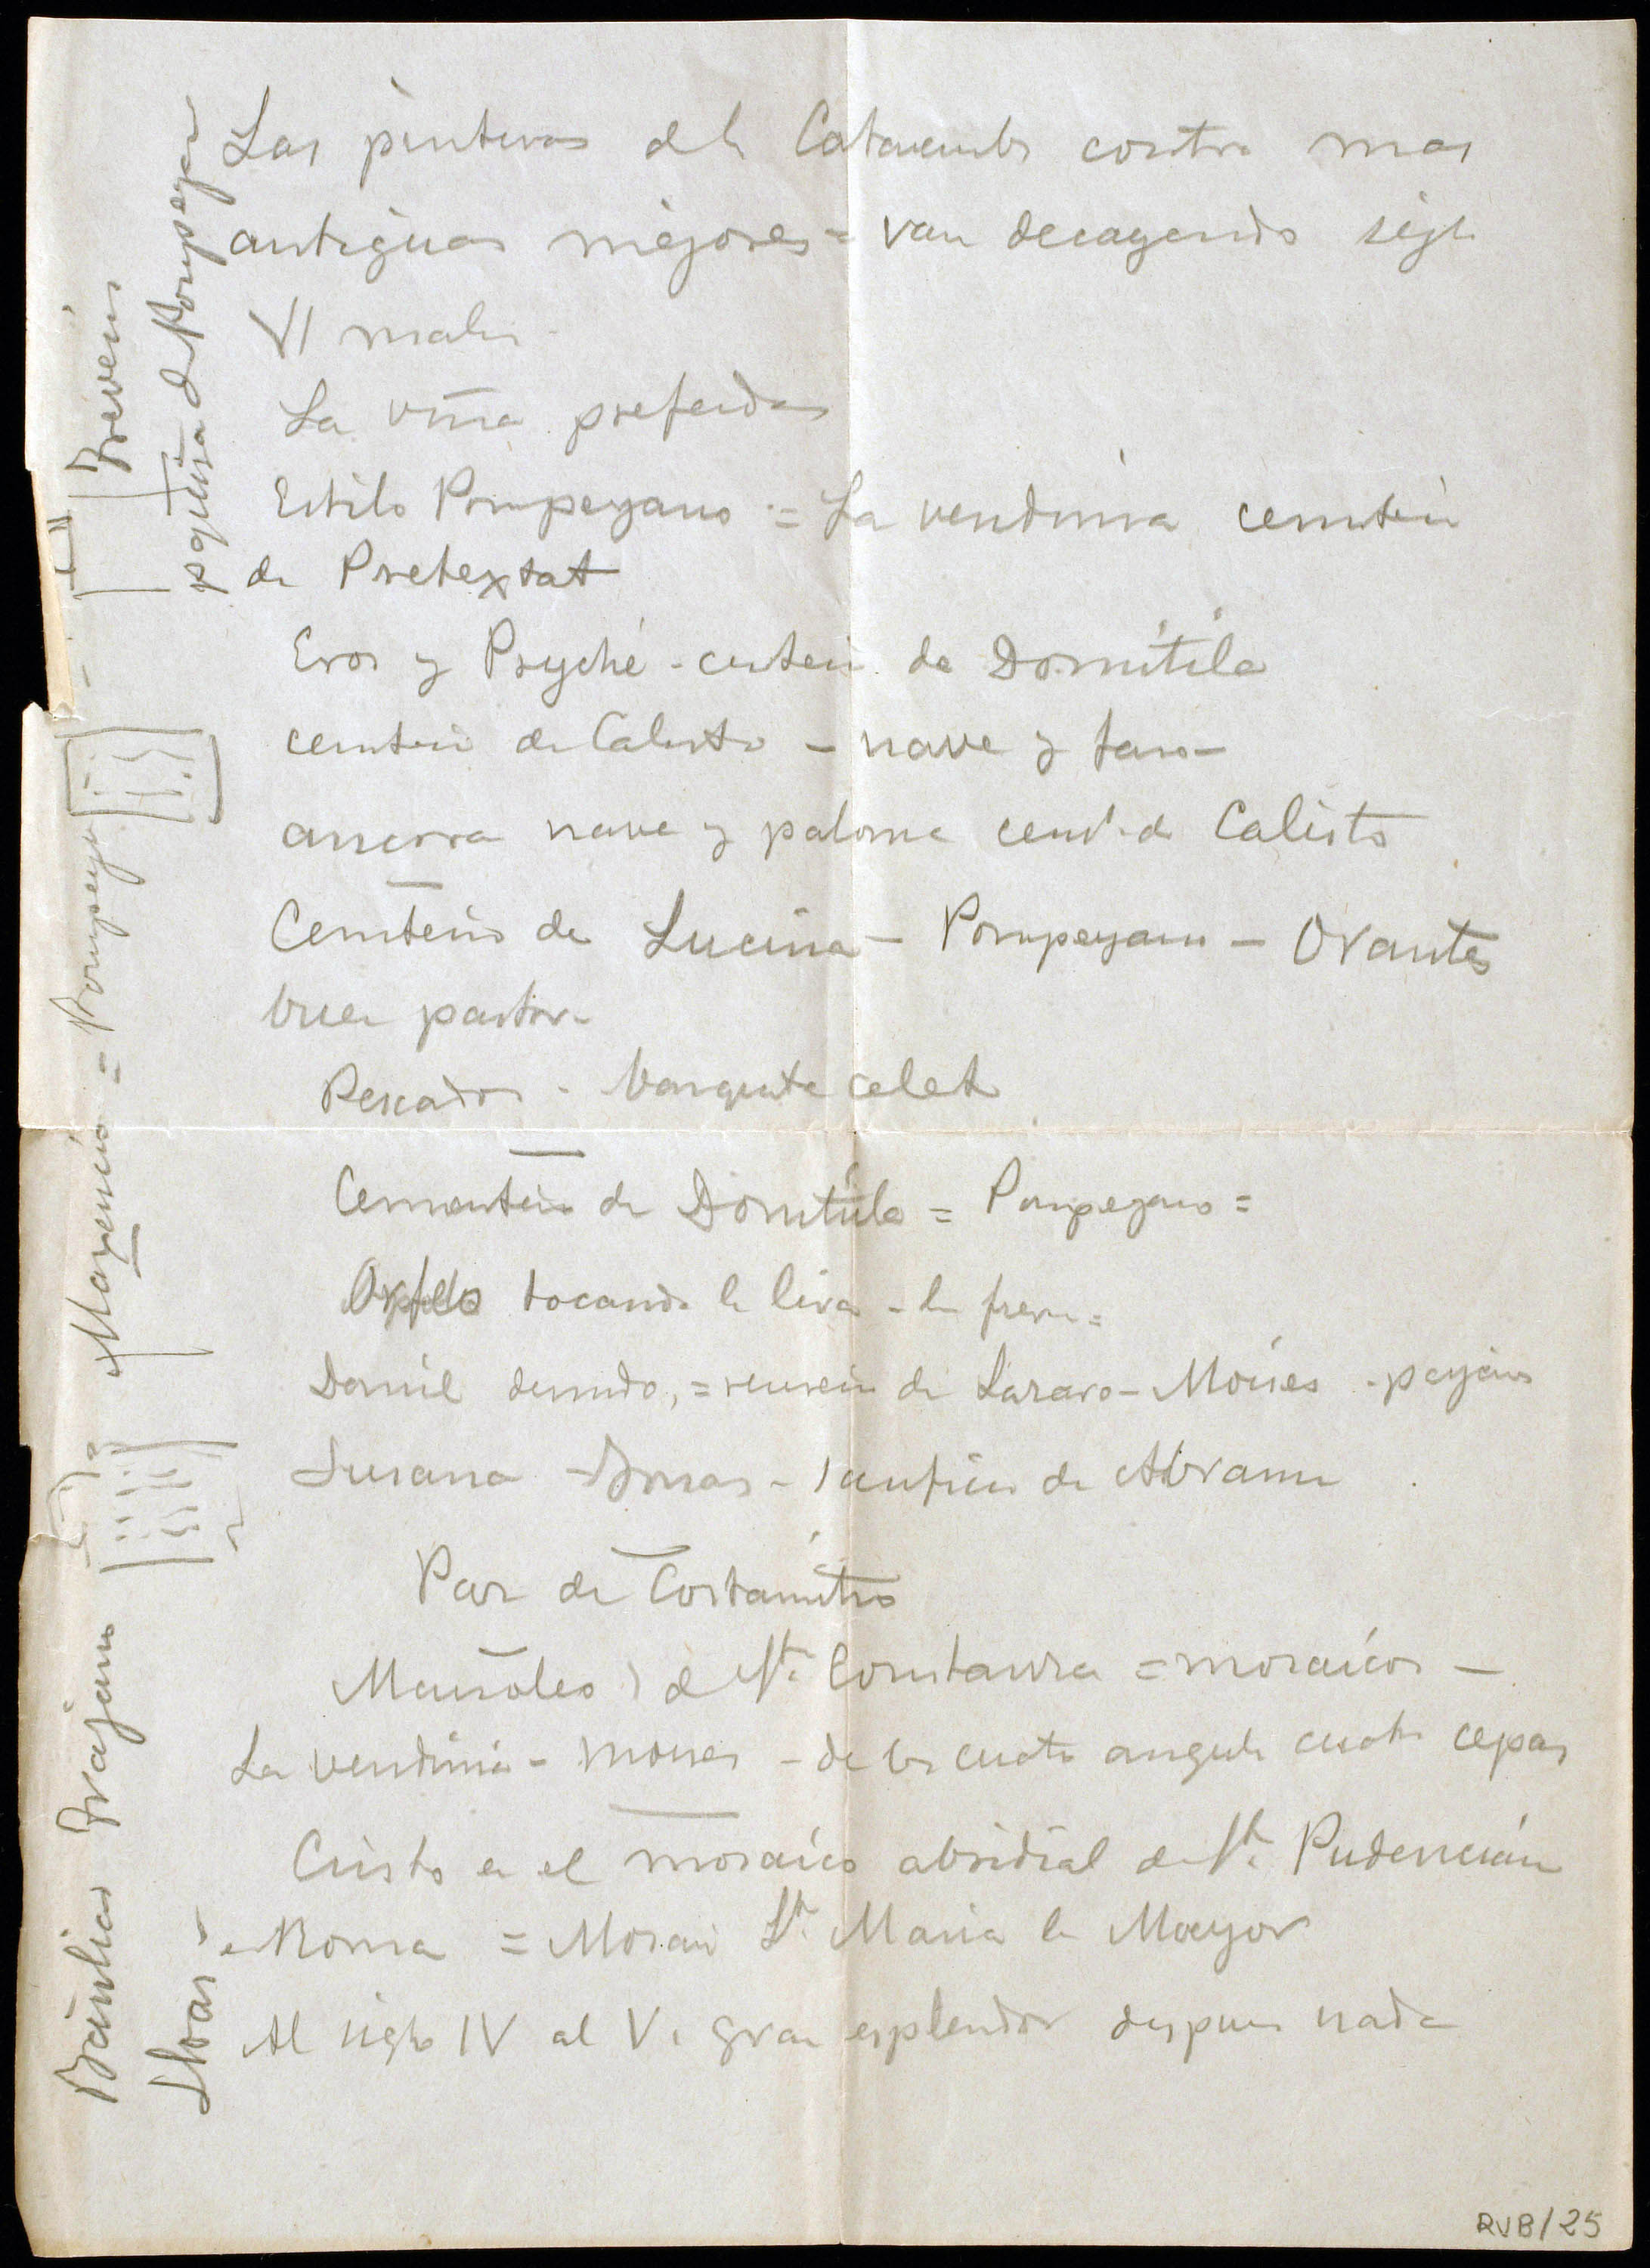 Las pinturas de la Catacumbs contra mas
antiguas mejores = van decayendo siglo
VI malas -
La viña preferida
Estilo Pompeyano = La vendimia cemterio
de Pretextat
Eros y Psyché - cemterio de Domitila
cemterio de Calixto - nave y faro -
ancora nave y paloma cemt. de Calixto
Cemterio de Lucina - Pompeyano - Orantes
buen pastor -
Pescador - banquete celet
Cementerio de Domitila = Pompeyano =
Orfeo tocando la lira - la fieras =
Daniel desnudo, = resurecion de Lazaro - Moises - payeins
Susana - Jonas - sacrificio de Abraam
Paz de Costantino
Mausoleo de Sta. Constanza = mosaicos -
La vendimia - - de los cuatro angulos cuatro cepas
Cristo en el mosaico absidial de Sta. Pudenciana
Roma = Mosaico Sta. Maria la Mayor
Al siglo IV al V. gran esplendor despues nada
Basilicas Trajano Maxencio = Pompeya Treveris
pequeña de Pompeya
RVB/25